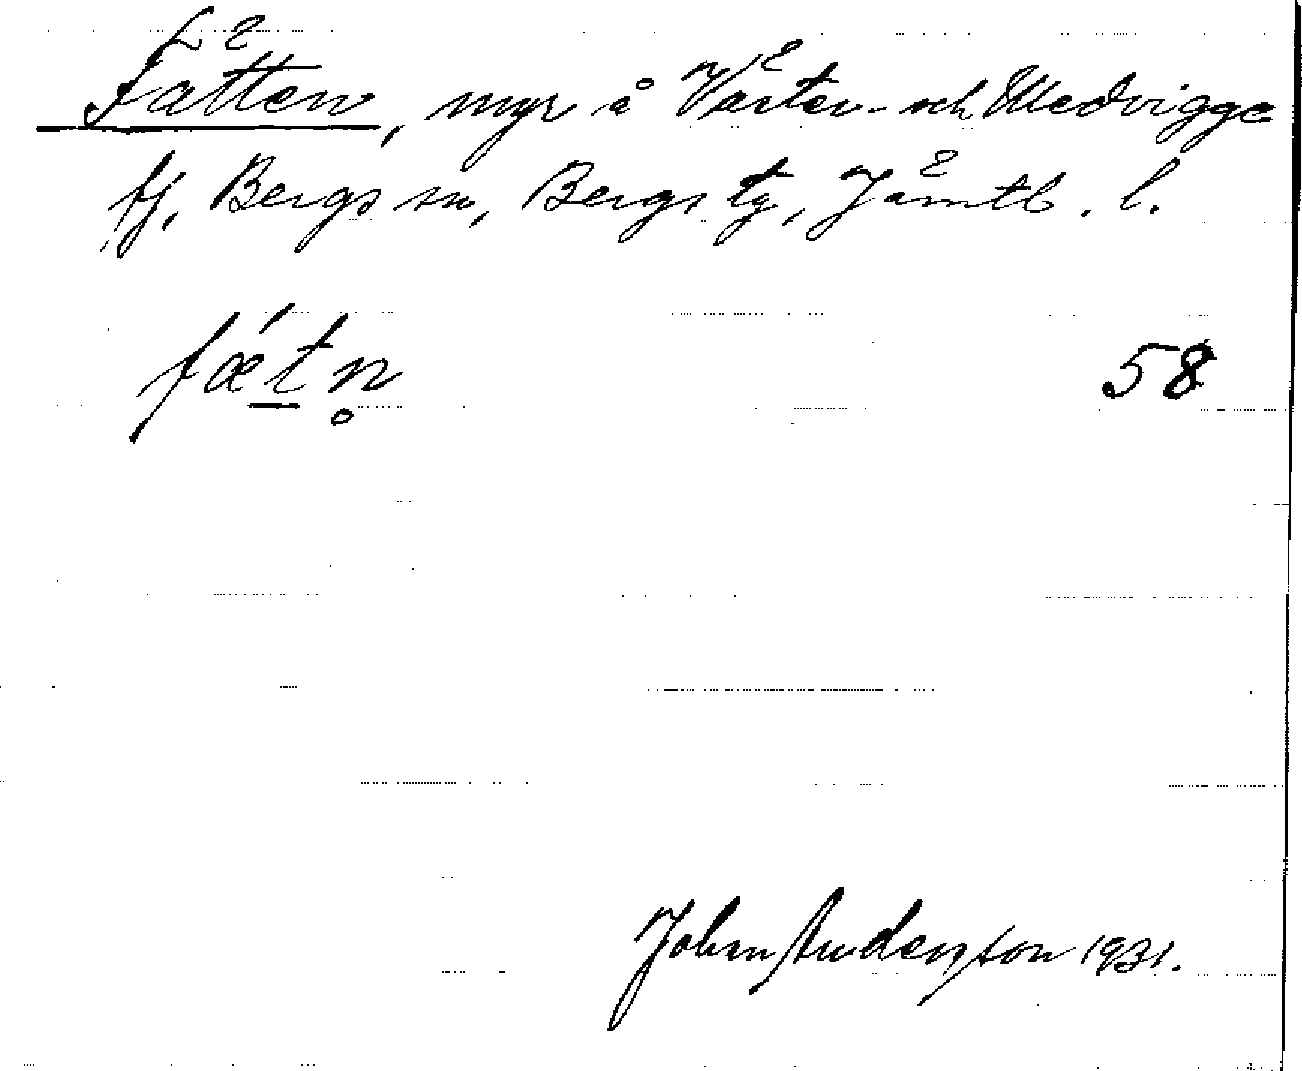 Fätten, myr å Väster- och Medvigge
fj., Bergs sn, Bergs tg, Jämtl. l.
fǽt̲n̥ 58
John Anderson 1931.